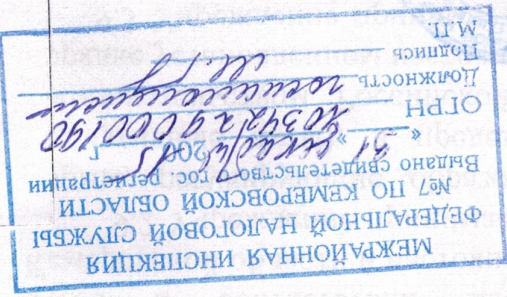 МЕЖРАЙОННАЯ ИНСПЕКЦИЯ
ФЕДЕРАЛЬНОЙ НАЛОГОВОЙ СЛУЖБЫ
№7 ПО КЕМЕРОВСКОЙ ОБЛАСТИ
Выдано свидетельство о гос. регистрации
« 31 » декабря 200 г
ОГРН
Должность
Подпись
М.П.